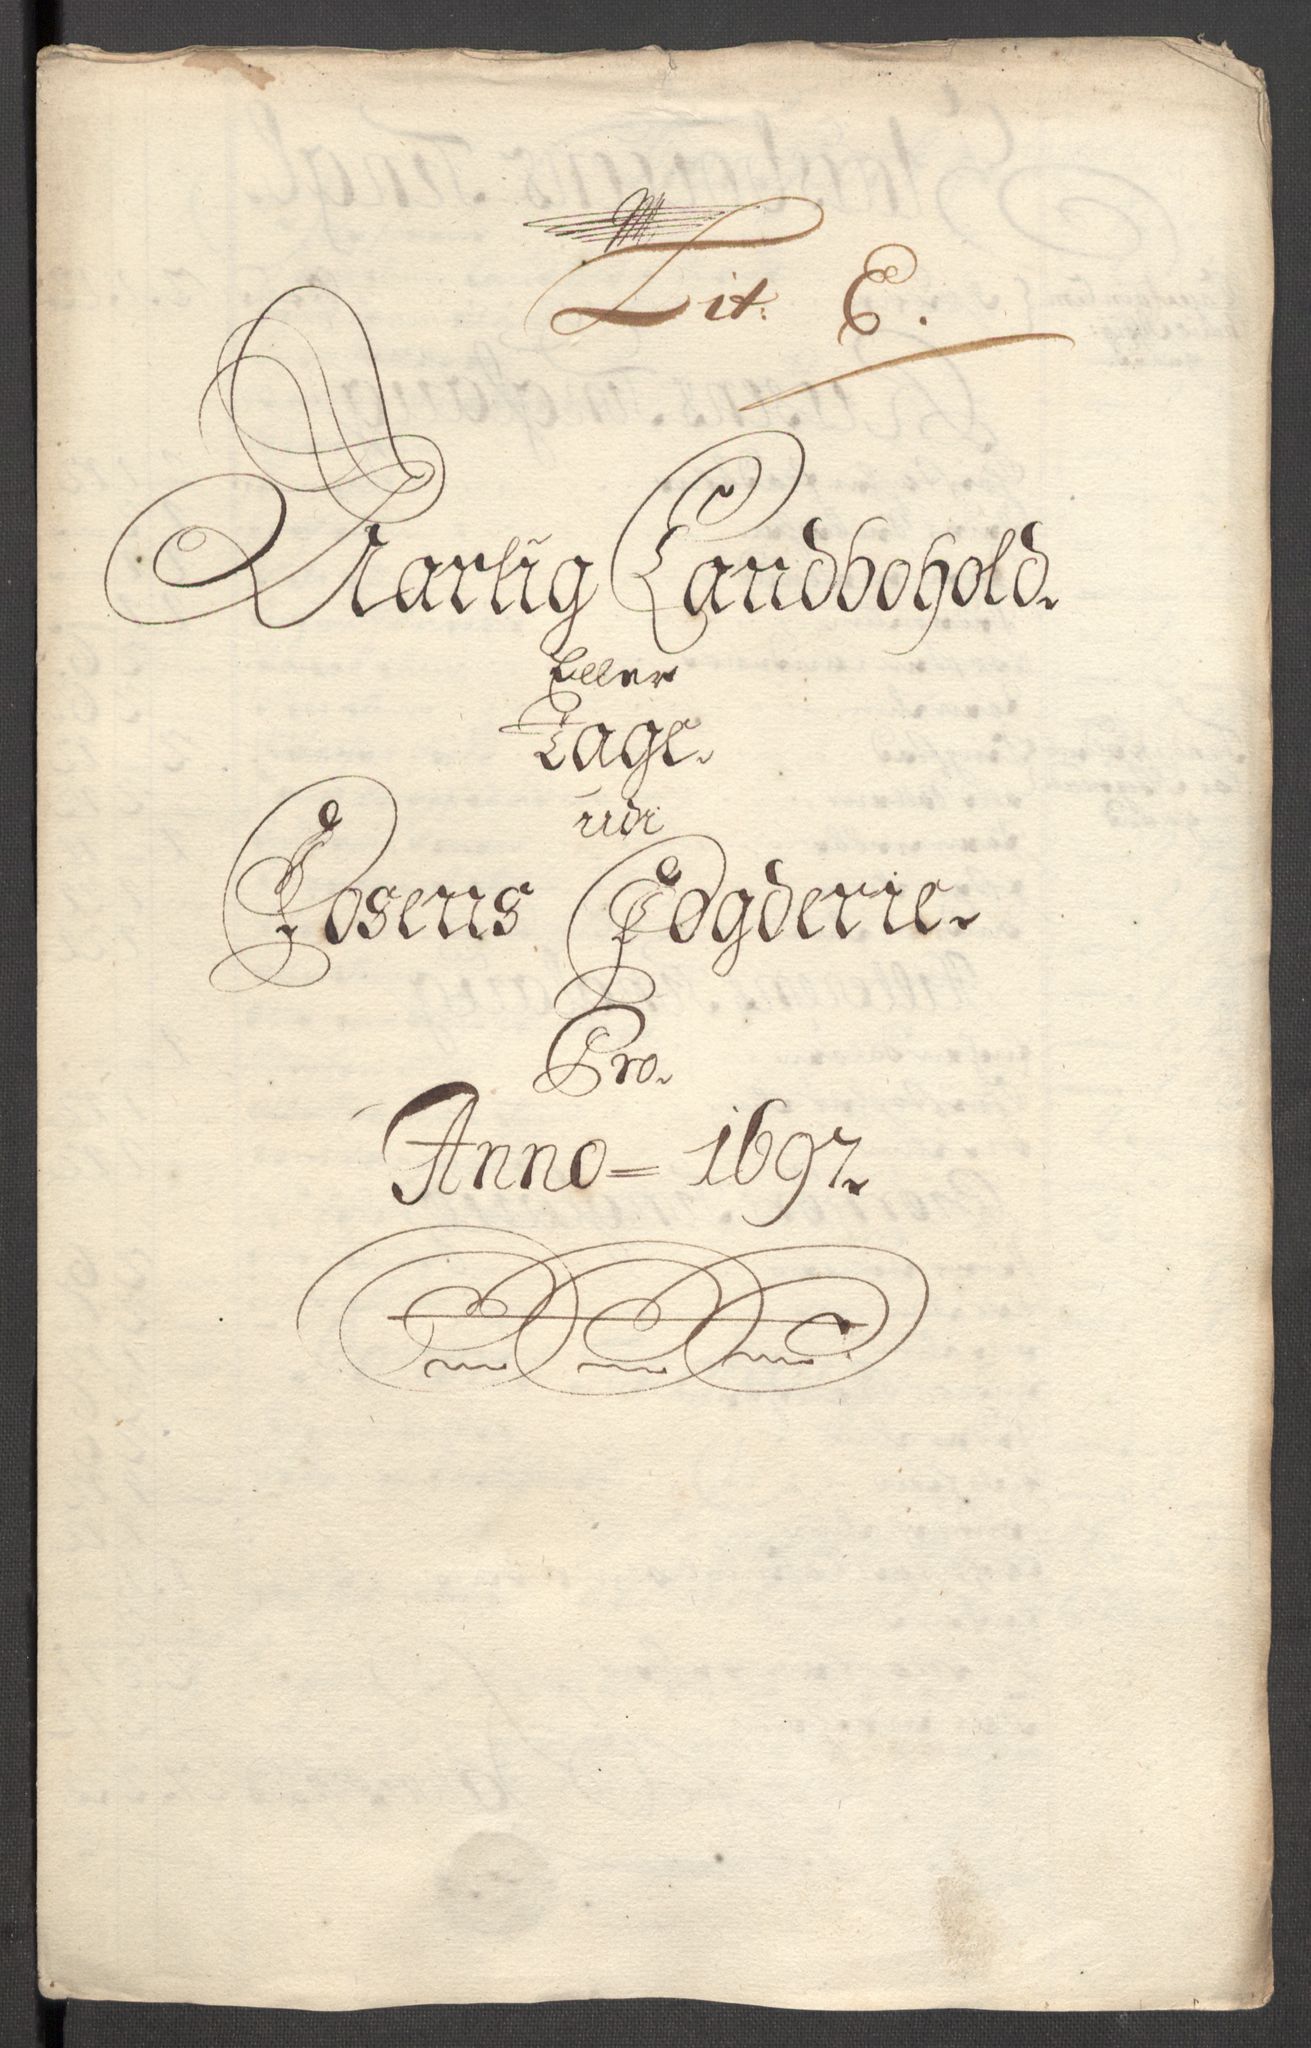 Lit: E.
Aarlig Landbohold.
Eller
Tage.
udi
Fosens Fogderie.
Pro.
Anno = 1697.